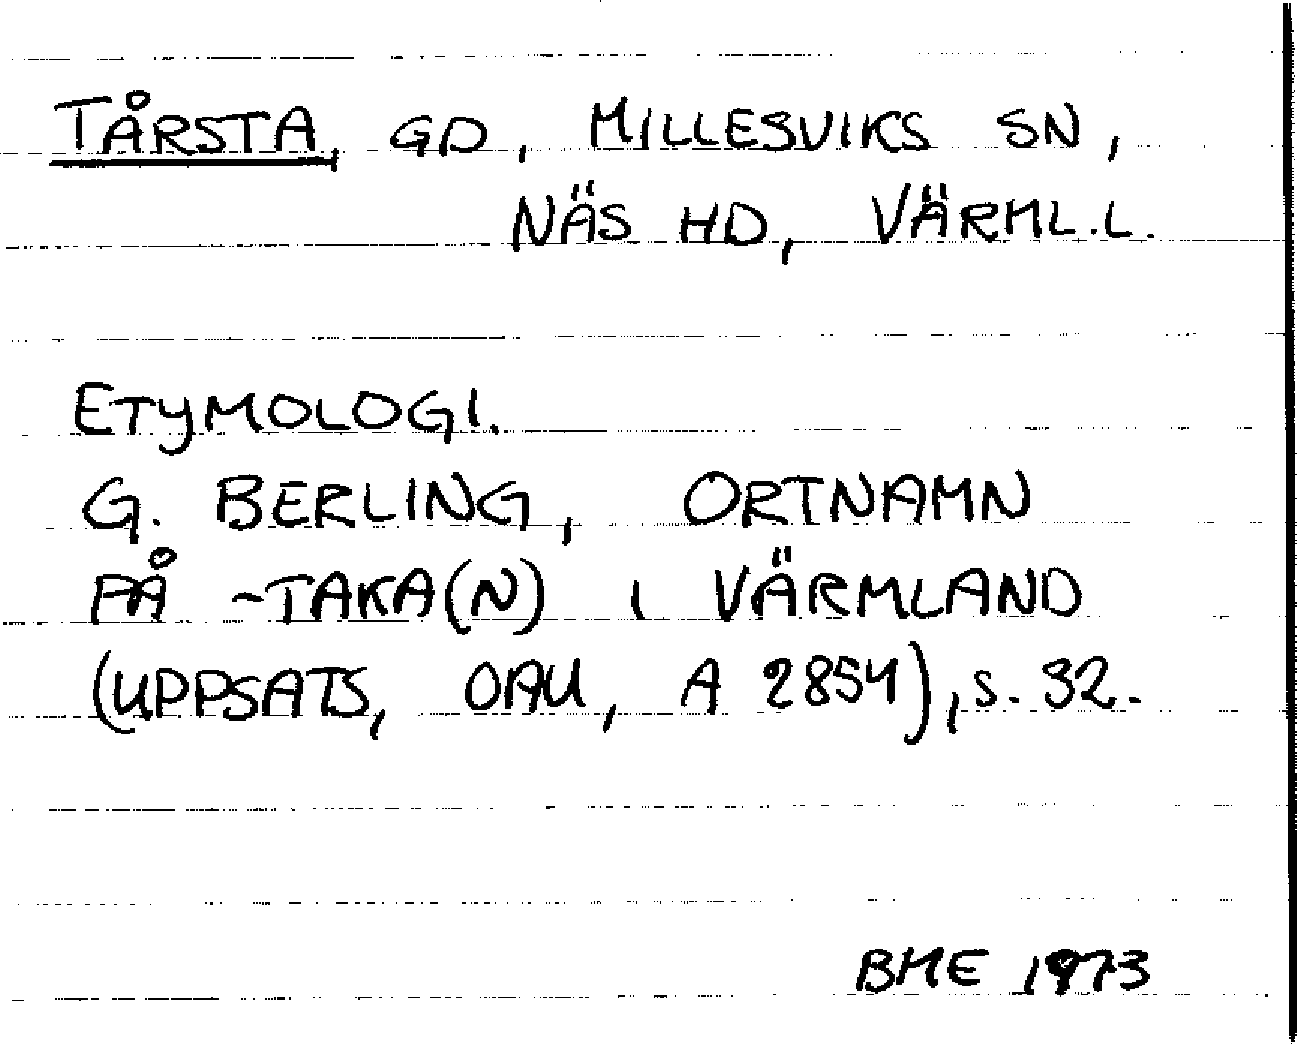 TÅRSTA, GD, MILLESVIKS SN,
NÄS HD, VÄRML.L.
ETYMOLOGI.
G. BERLING, ORTNAMN
PÅ -TAKA(N) I VÄRMLAND
(UPPSATS, OAU, A 2854), S. 32.
BME 1973